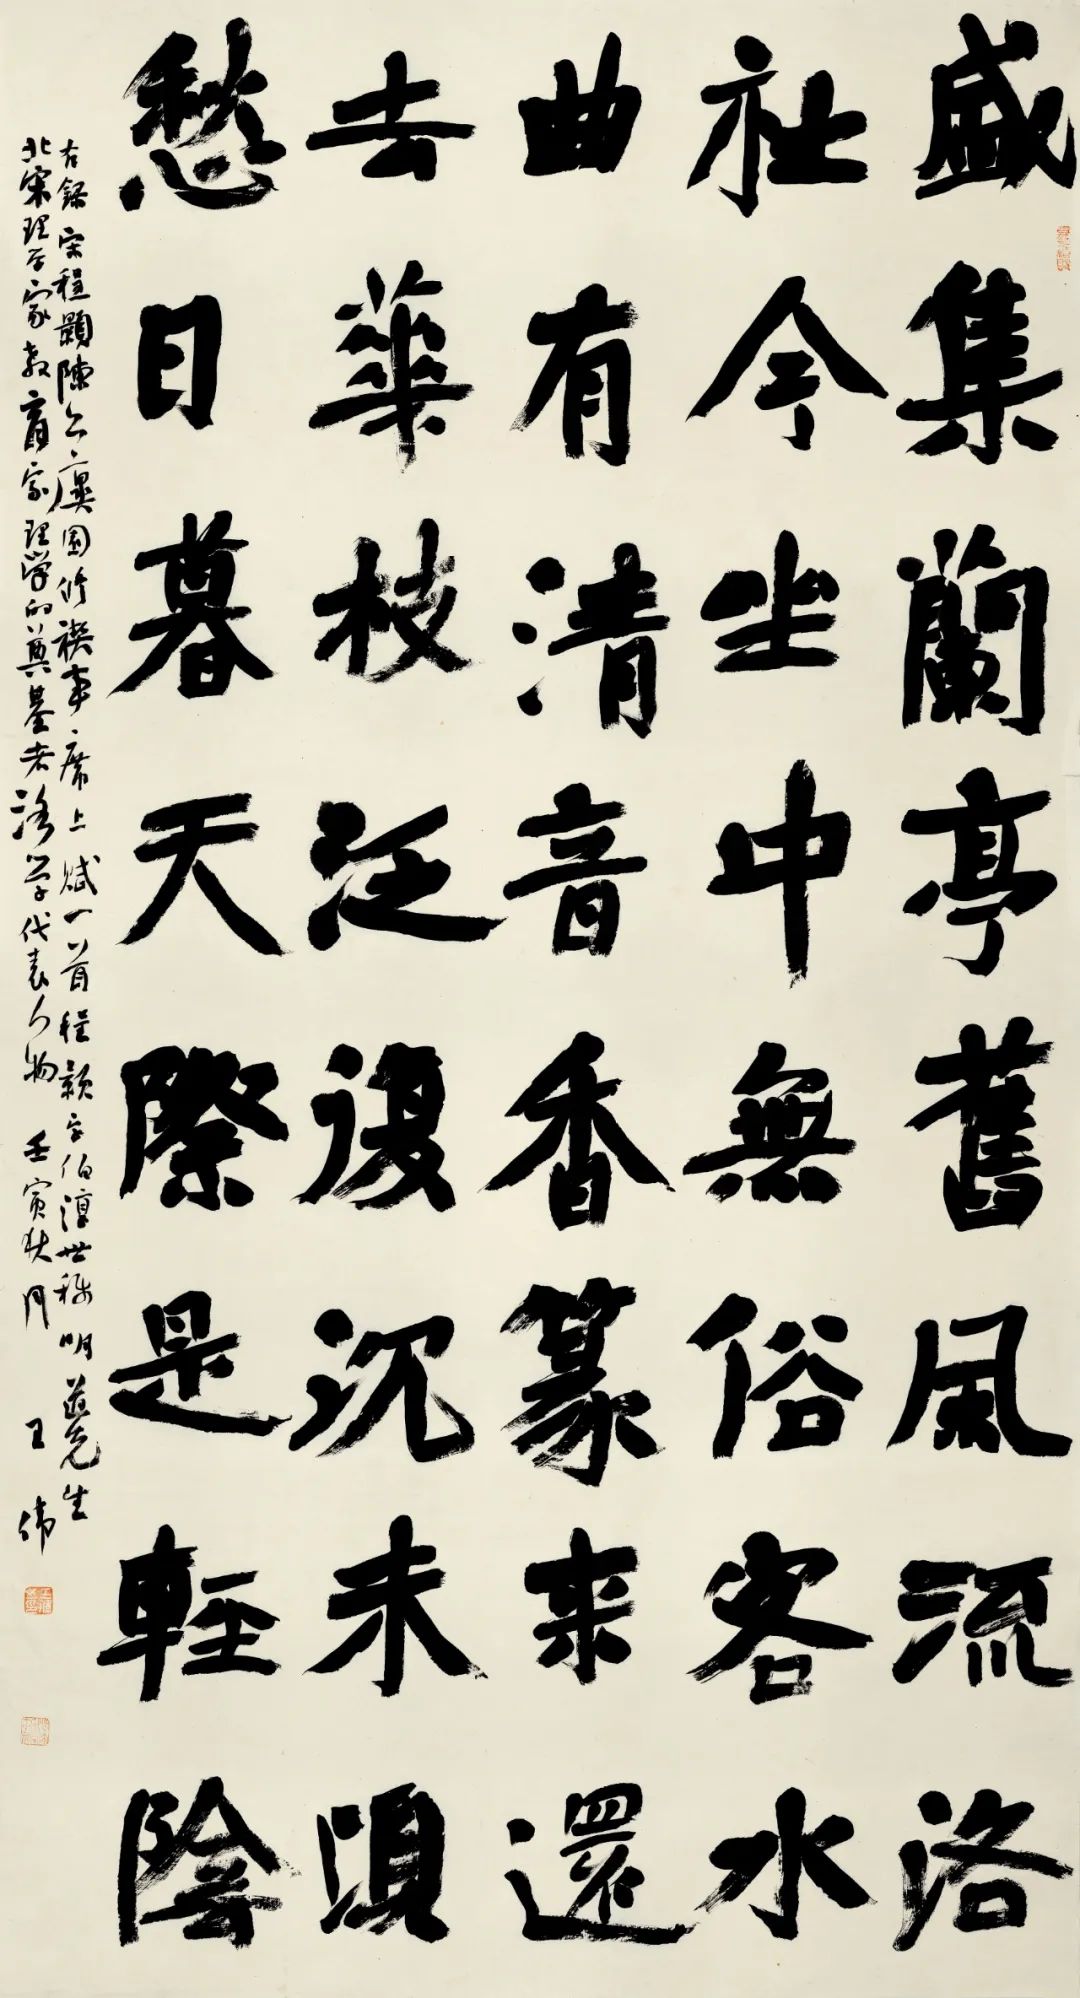 盛集蘭亭舊風流洛
社今坐中無俗客水
曲有清音香篆来還
去華枝泛復沉未須
愁日暮天際是輕陰
右錄宋程顥陳公廙園修禊事席上賦一首程顥字伯淳世称明道先生
北宋理学家教育家理學的奠基者洛学代表人物 壬寅秋月 王伟